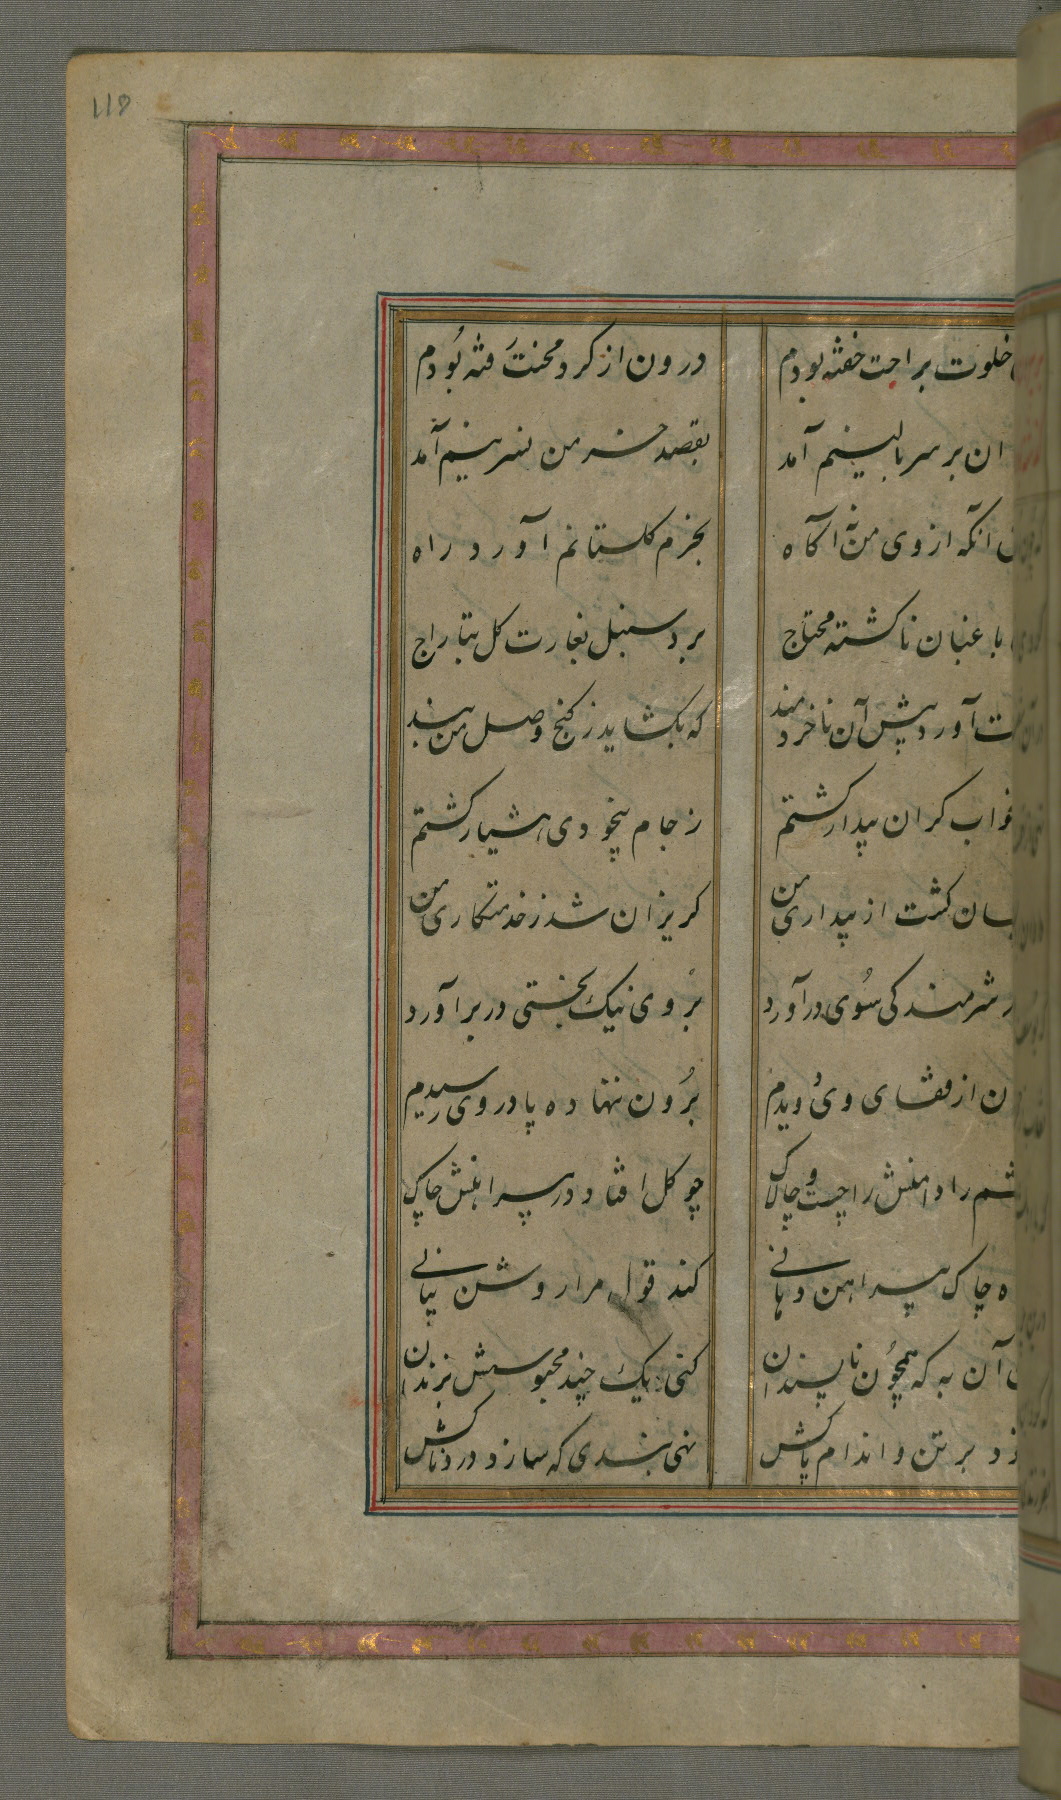 118
خلوت براحت خفته بودم درون از کرد محنت رفته بودم
ان بر سر بالینم آمد بقصد خرمن نسرینم آمد
انکه از وی من نه آکاه بخرم کلستانم آورد راه
باغبان ناکشته محتاج برد سنبل بغارت کل بتاراج
آورد پیش آن ناخردمند که بکشاید ز کنج وصل من بند
خواب کران بیدار کشتم ز جام بیخودی هشیار کشتم
سان کشت از بیداری من کریزان شد ز خدمتکاری من
شرمندکی سوی در آورد بروی نیک بختی در بر آورد
ن از قفای وی دویدم برون ننهاده پا در وی رسیدم
شم را دامنش را چست و چالاک چو کل افتاد در پیراهنش چاک
ه چاک پیراهن دهانی کند قول مرا روشن بیانی
آن به که همچون ناپسندان کنی یک چند محبوسش بزندان
د بر تن و اندام پاکش نهی بندی که سازد دردناکش